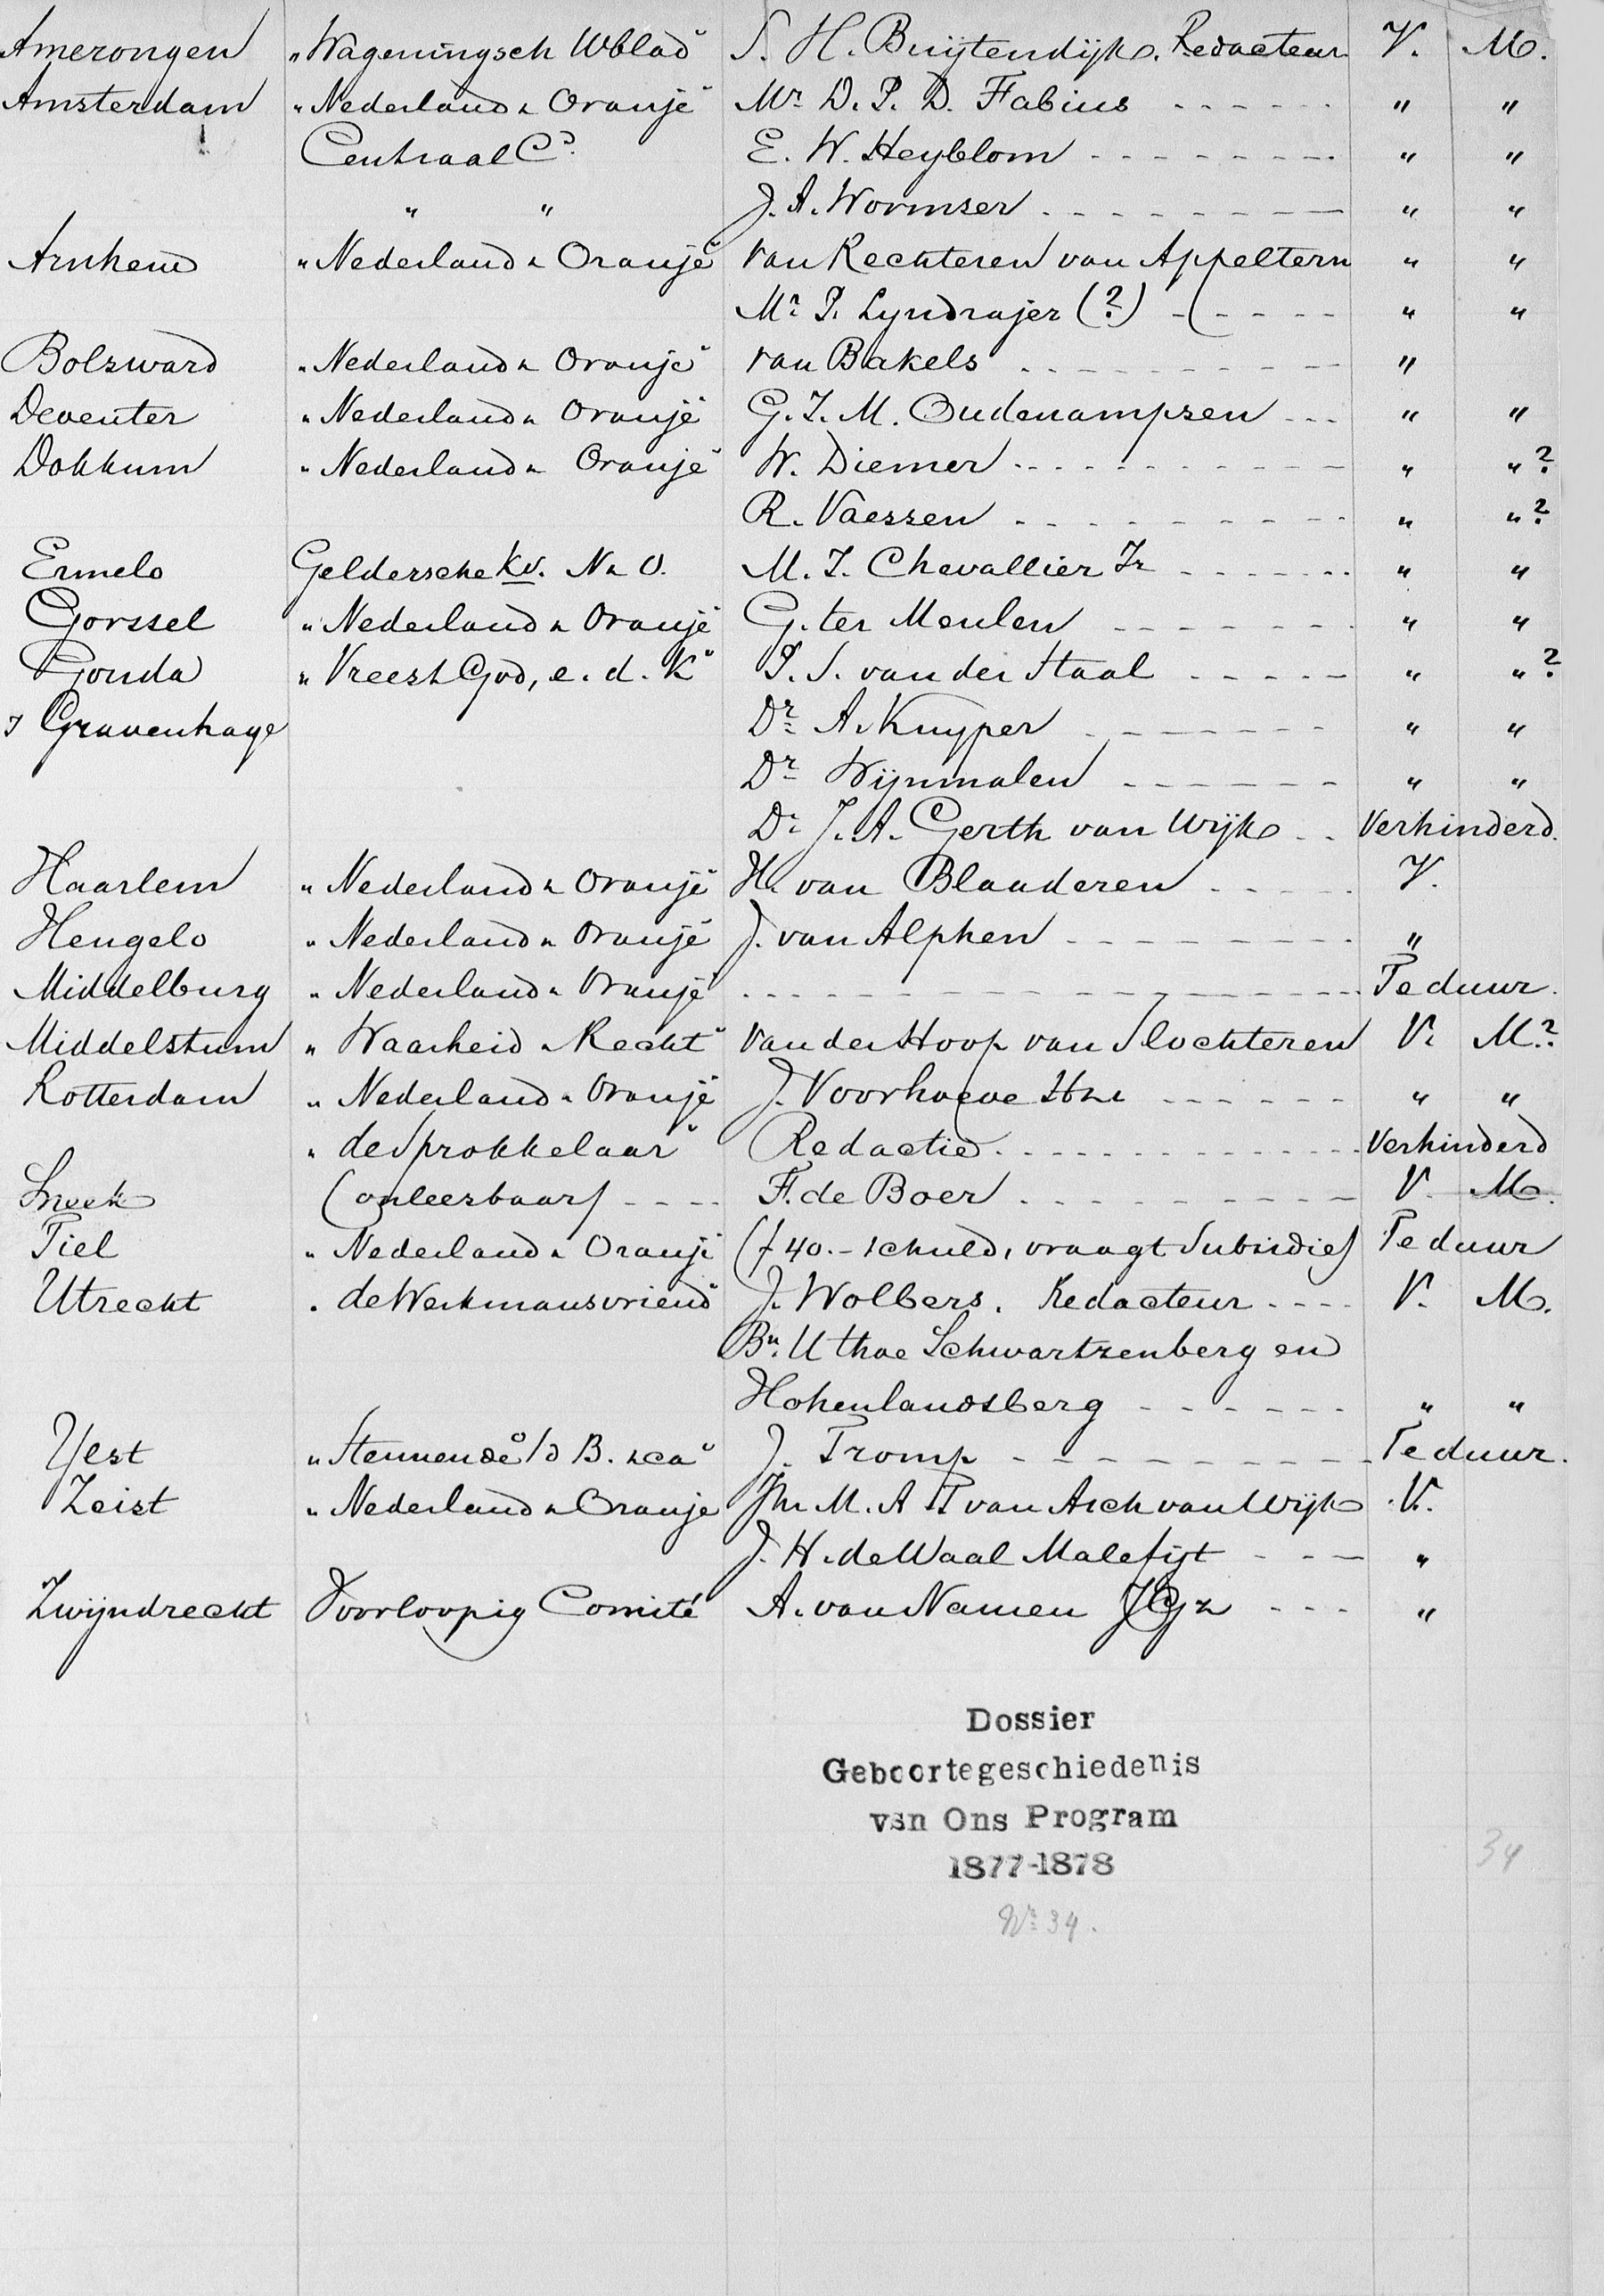 Amerongen „Wageningsch Wblad” S. H. Buijtendijk. Redacteur V. M.
Amsterdam „Nederland & Oranje” Mr. D. P. D. Fabius - - - - - - " "
Centraal Cé. E. W. Heyblom - - - - - - - - " "
" " J. A. Wormser - - - - - - - - " "
Arnhem „Nederland & Oranje” van Rechteren van Appeltern " "
Mr. P. Lyndrajer (?) - ( - - - - " "
Bolsward „Nederland & Oranje” van Bakels - - - - - - - - "
Deventer „Nederland & Oranje” G. J. M. Oudenampsen - - - " "
Dokkum „Nederland & Oranje” W. Diemer - - - - - - - - " " ?
R. Vaessen - - - - - - - - " " ?
Ermelo Geldersche Kv. N & O. M. J. Chevallier Jr - - - - - - " "
Gorssel „Nederland & Oranje” G. ter Meulen - - - - - - - " "
Gouda „Vreest God, e. d. K” P. S. van der Staal - - - - - " " ?
s Gravenhage Dr. A. Kuyper - - - - - - - " "
Dr. Wijnmalen - - - - - - " "
Dr. J. A. Gerth van Wijk - - Verhinderd.
Haarlem „Nederland & Oranje” H. van Blaaderen - - - - V.
Hengelo „Nederland & Oranje” J. van Alphen - - - - - - - - "
Middelburg „Nederland & Oranje” - - - - - - - - - - - - Te duur.
Middelstum „Waarheid & Recht” van der Hoop van Slochteren V. M.?
Rotterdam „Nederland & Oranje” J. Voorhoeve Hzn - - - - - - " "
„de Sprokkelaar” Redactie - - - - - - - - - - Verhinderd
Sneek (onleesbaar) - - - - F. de Boer - - - - - - - - - V. M.
Tiel „Nederland & Oranje (f 40.- schuld, vraagt Subsidie) Te duur
Utrecht „de Werkmansvriend” J. Wolbers. Redacteur - - - - V. M.
Bn. U thoe Schwartzenberg en
Hohenlandsberg - - - - - - " "
Yest J. Tromp - - - - - - - - - Te duur.
Zeist „Nederland & Oranje Jhr M. A F van Asch van Wijk V.
J. H. de Waal Malefijt - - - "
Zwijndrecht Voorloopig Comité A. van Namen JGzn - - - "
Dossier
Geboortegeschiedenis
van Ons Program
1877-1878
34
No. 34.